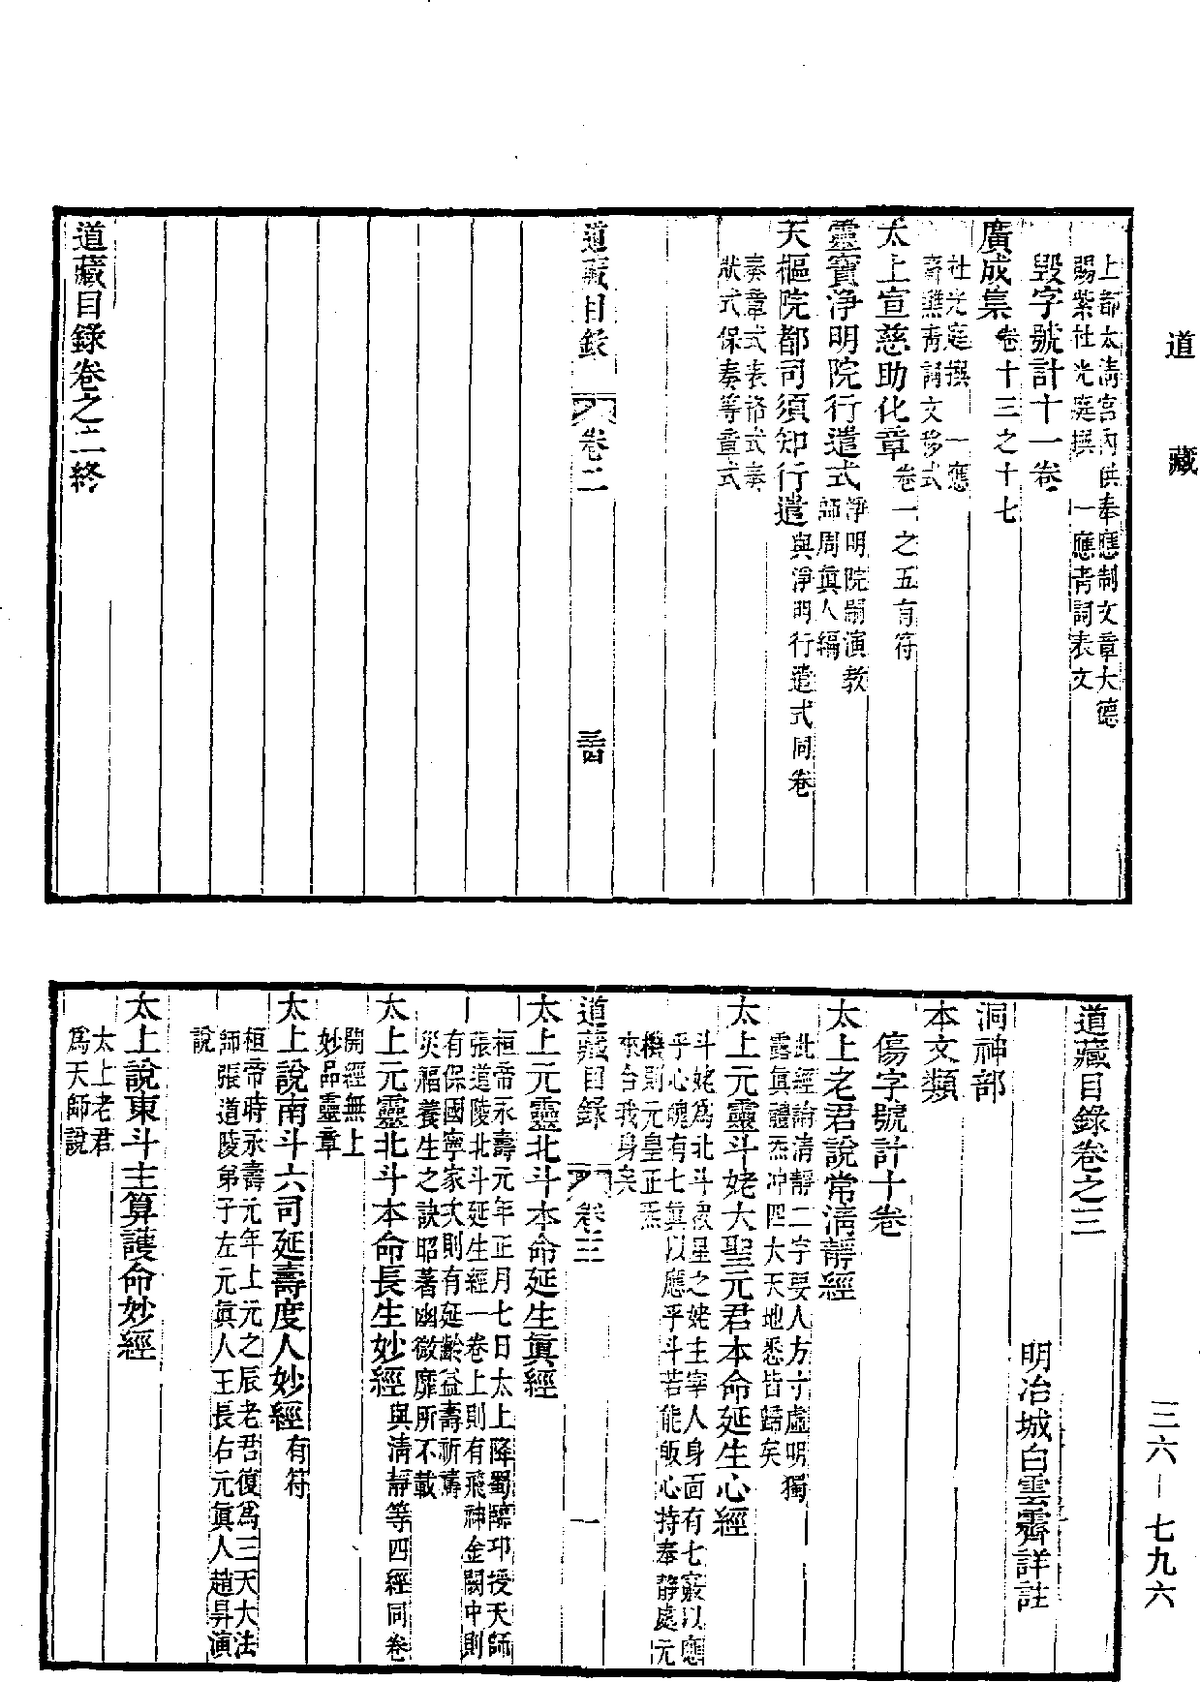 道藏
上都太淸宮內供奉應制文章大德
賜紫杜光庭撰　一應靑詞表文
毀字號計十一卷
廣成集卷十三之十七
杜光庭撰　一應
齋醮靑詞文移式
太上宣慈助化章卷一之五有符
靈寶淨明院行遣式淨明院嗣演教
師周眞人編
天樞院都司須知行遣與淨明行遣式同卷
奏章式表諮式奏
狀式保奏等章式
道藏目錄　卷二　三四
道藏目錄卷之二終
道藏目錄卷之三
明冶城白雲霽詳註
洞神部
本文類
傷字號計十卷
太上老君說常淸靜經
此經論淸靜二字要人方寸虛明獨
露眞體炁冲四大天地悉皆歸矣
太上元靈斗姥大聖元君本命延生心經
斗姥爲北斗衆星之姥主宰人身面有七竅以應
乎心魂有七眞以應乎斗若能皈心持奉靜處元
機則元皇正炁
來合我身矣
道藏目錄　卷三　一
太上元靈北斗本命延生眞經
桓帝永壽元年正月七日太上降蜀臨邛授天師
張道陵北斗延生經一卷上則有飛神金闕中則
有保國寧家次則有延齡益壽祈禱
災福養生之訣昭著幽微靡所不載
太上元靈北斗本命長生妙經與淸靜等四經同卷
開經無上
妙品靈章
太上說南斗六司延壽度人妙經有符
桓帝時永壽元年上元之辰老君復爲三天大法
師張道陵弟子左元眞人王長右元眞人趙昇演
說
太上說東斗主算護命妙經
太上老君
爲天師說
三六—七九六